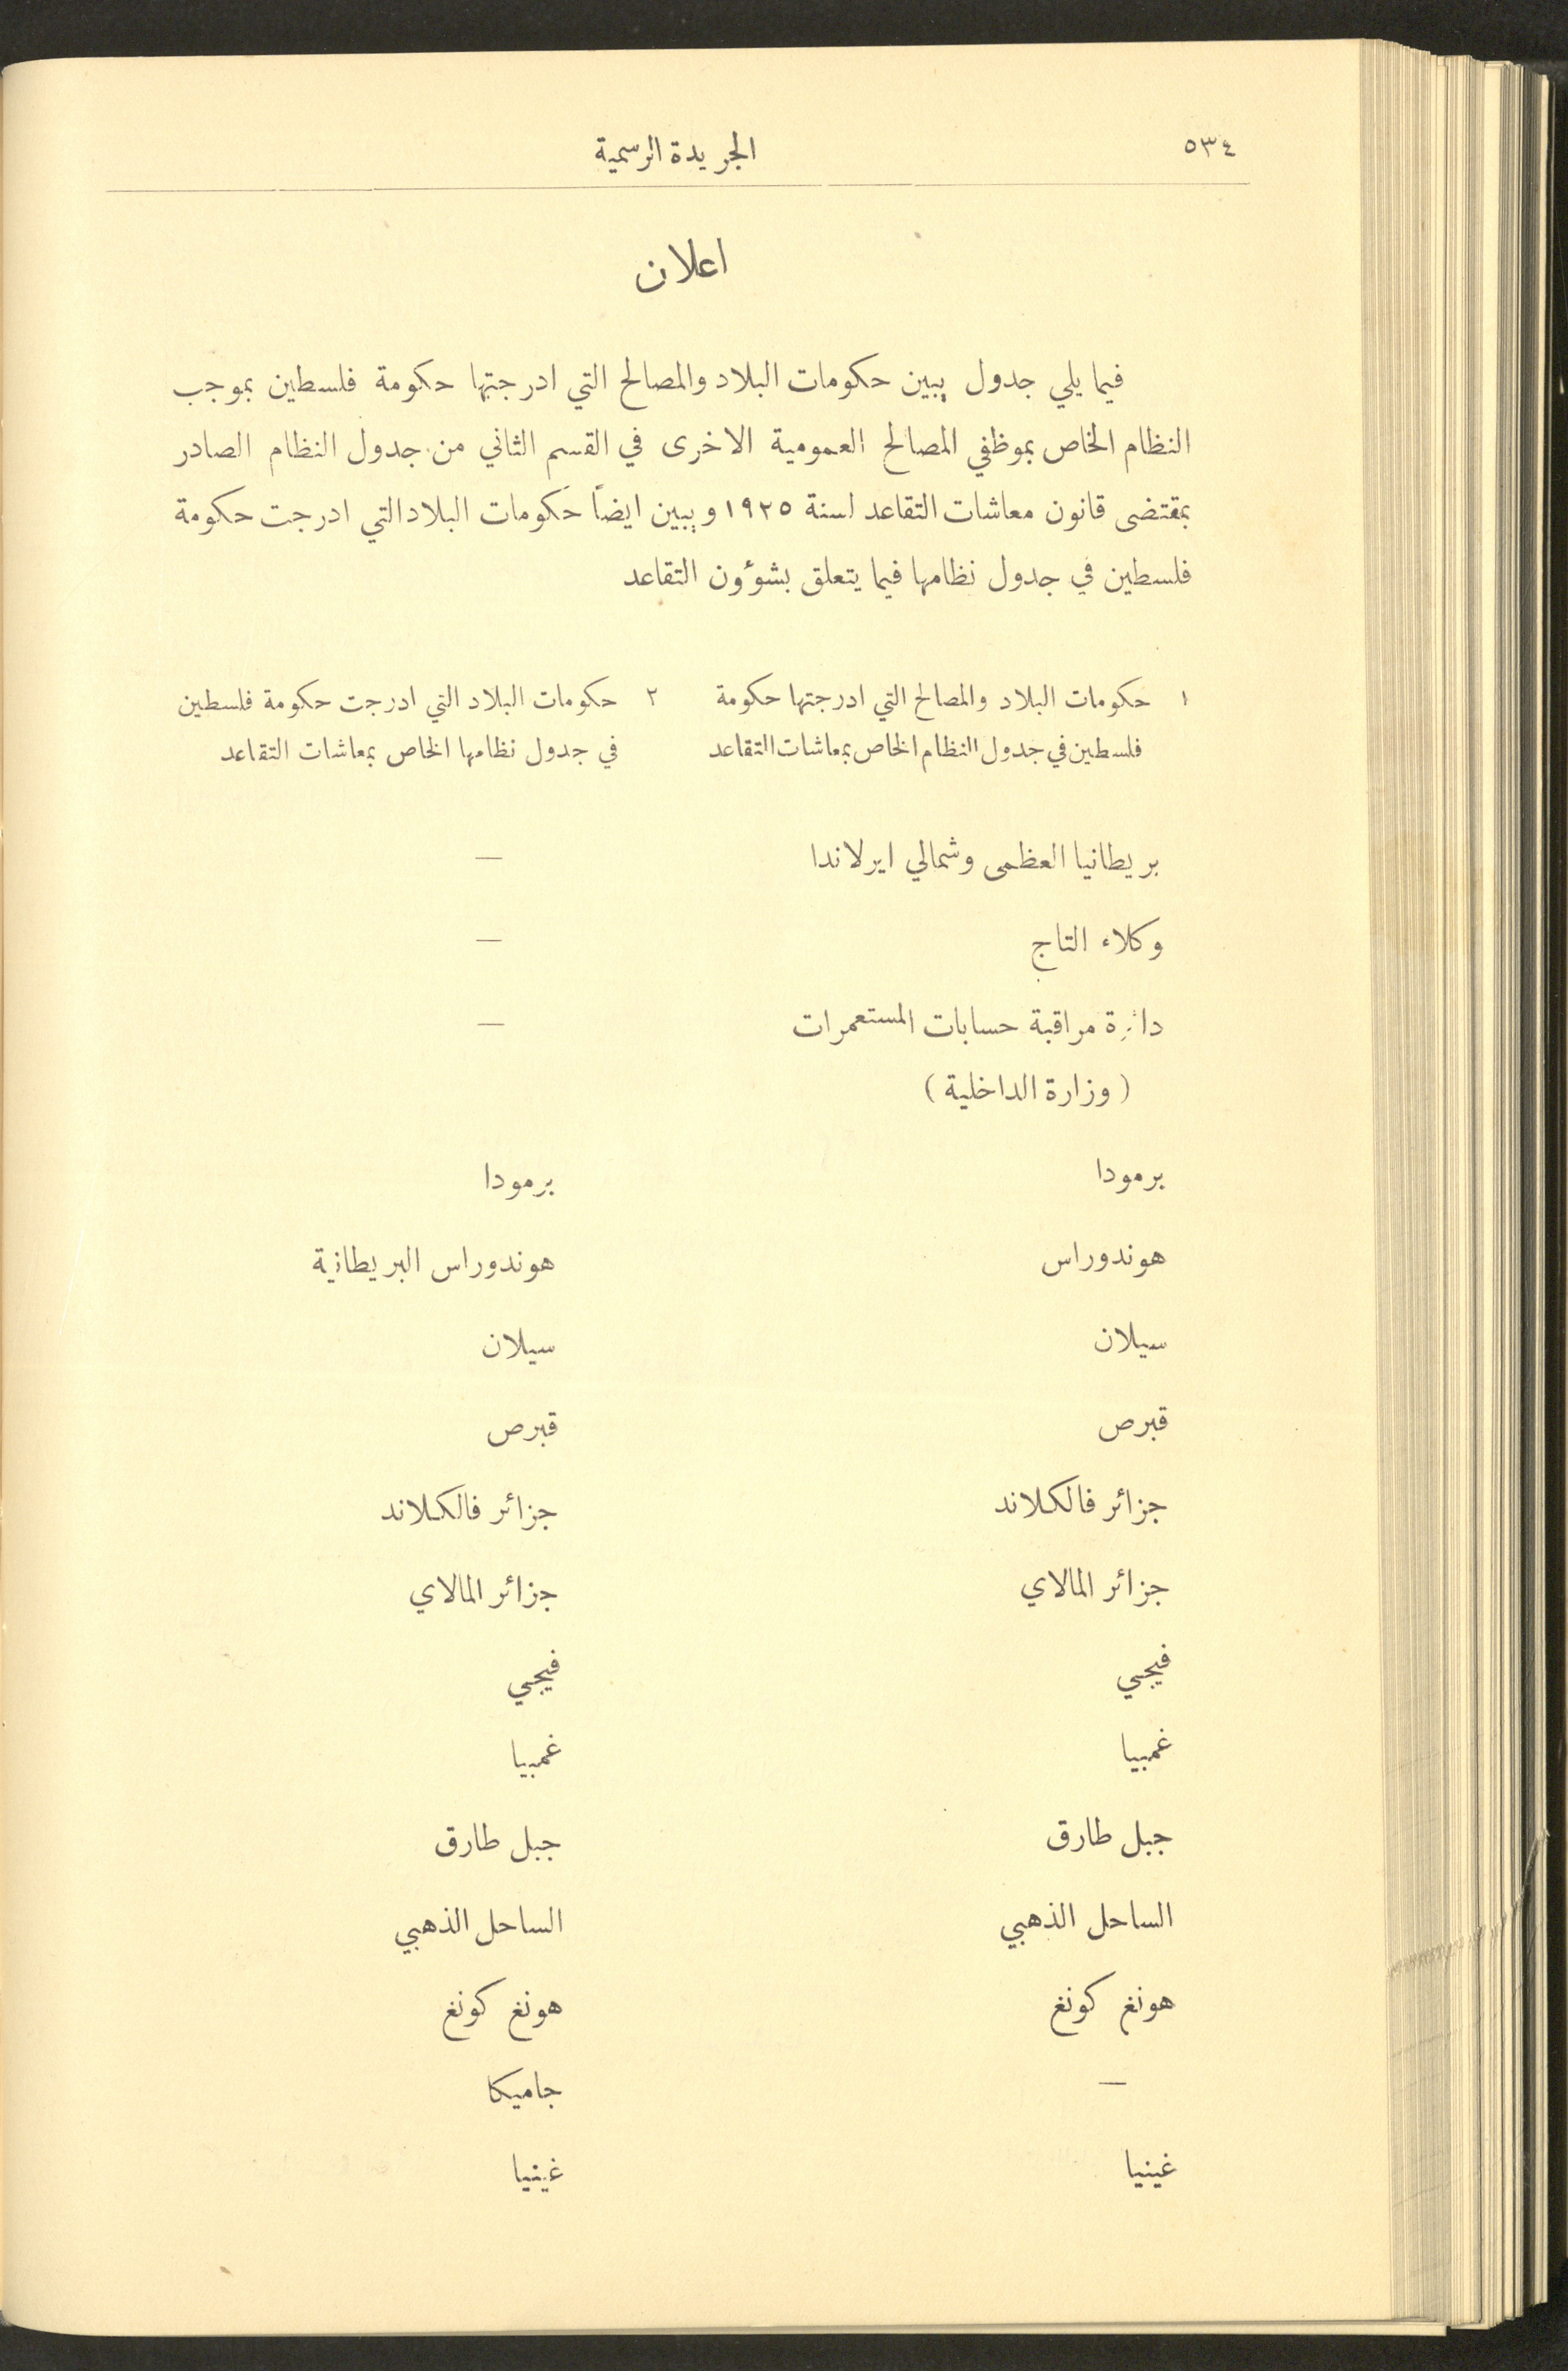 ٥٣٤
الجريدة الرسمية
اعلان
فيما يلي جدول يبين حكومات البلاد والمصالح التي ادرجتها حكومة فلسطين بموجب
النظام الخاص بموظفي المصالح العمومية الاخرى في القسم الثاني من جدول النظام الصادر
بمقتضى قانون معاشات التقاعد لسنة ١٩٢٥ ويبين ايضاً حكومات البلاد التي ادرجت حكومة
فلسطين في جدول نظامها فيما يتعلق بشؤون التقاعد
١ حكومات البلاد والمصالح التي ادرجتها حكومة
فلسطين في جدول النظام الخاص بمعاشات التقاعد
٢ حكومات البلاد التي ادرجت حكومة فلسطين
في جدول نظامها الخاص بمعاشات التقاعد
بريطانيا العظمى وشمالي ايرلاندا —
وكلاء التاج —
دائرة مراقبة حسابات المستعمرات —
( وزارة الداخلية )
برمودا برمودا
هوندوراس هوندوراس البريطانية
سيلان سيلان
قبرص قبرص
جزائر فالكلاند جزائر فالكلاند
جزائر المالاي جزائر المالاي
فيجي فيجي
غمبيا غمبيا
جبل طارق جبل طارق
الساحل الذهبي الساحل الذهبي
هونغ كونغ هونغ كونغ
— جاميكا
غينيا غينيا